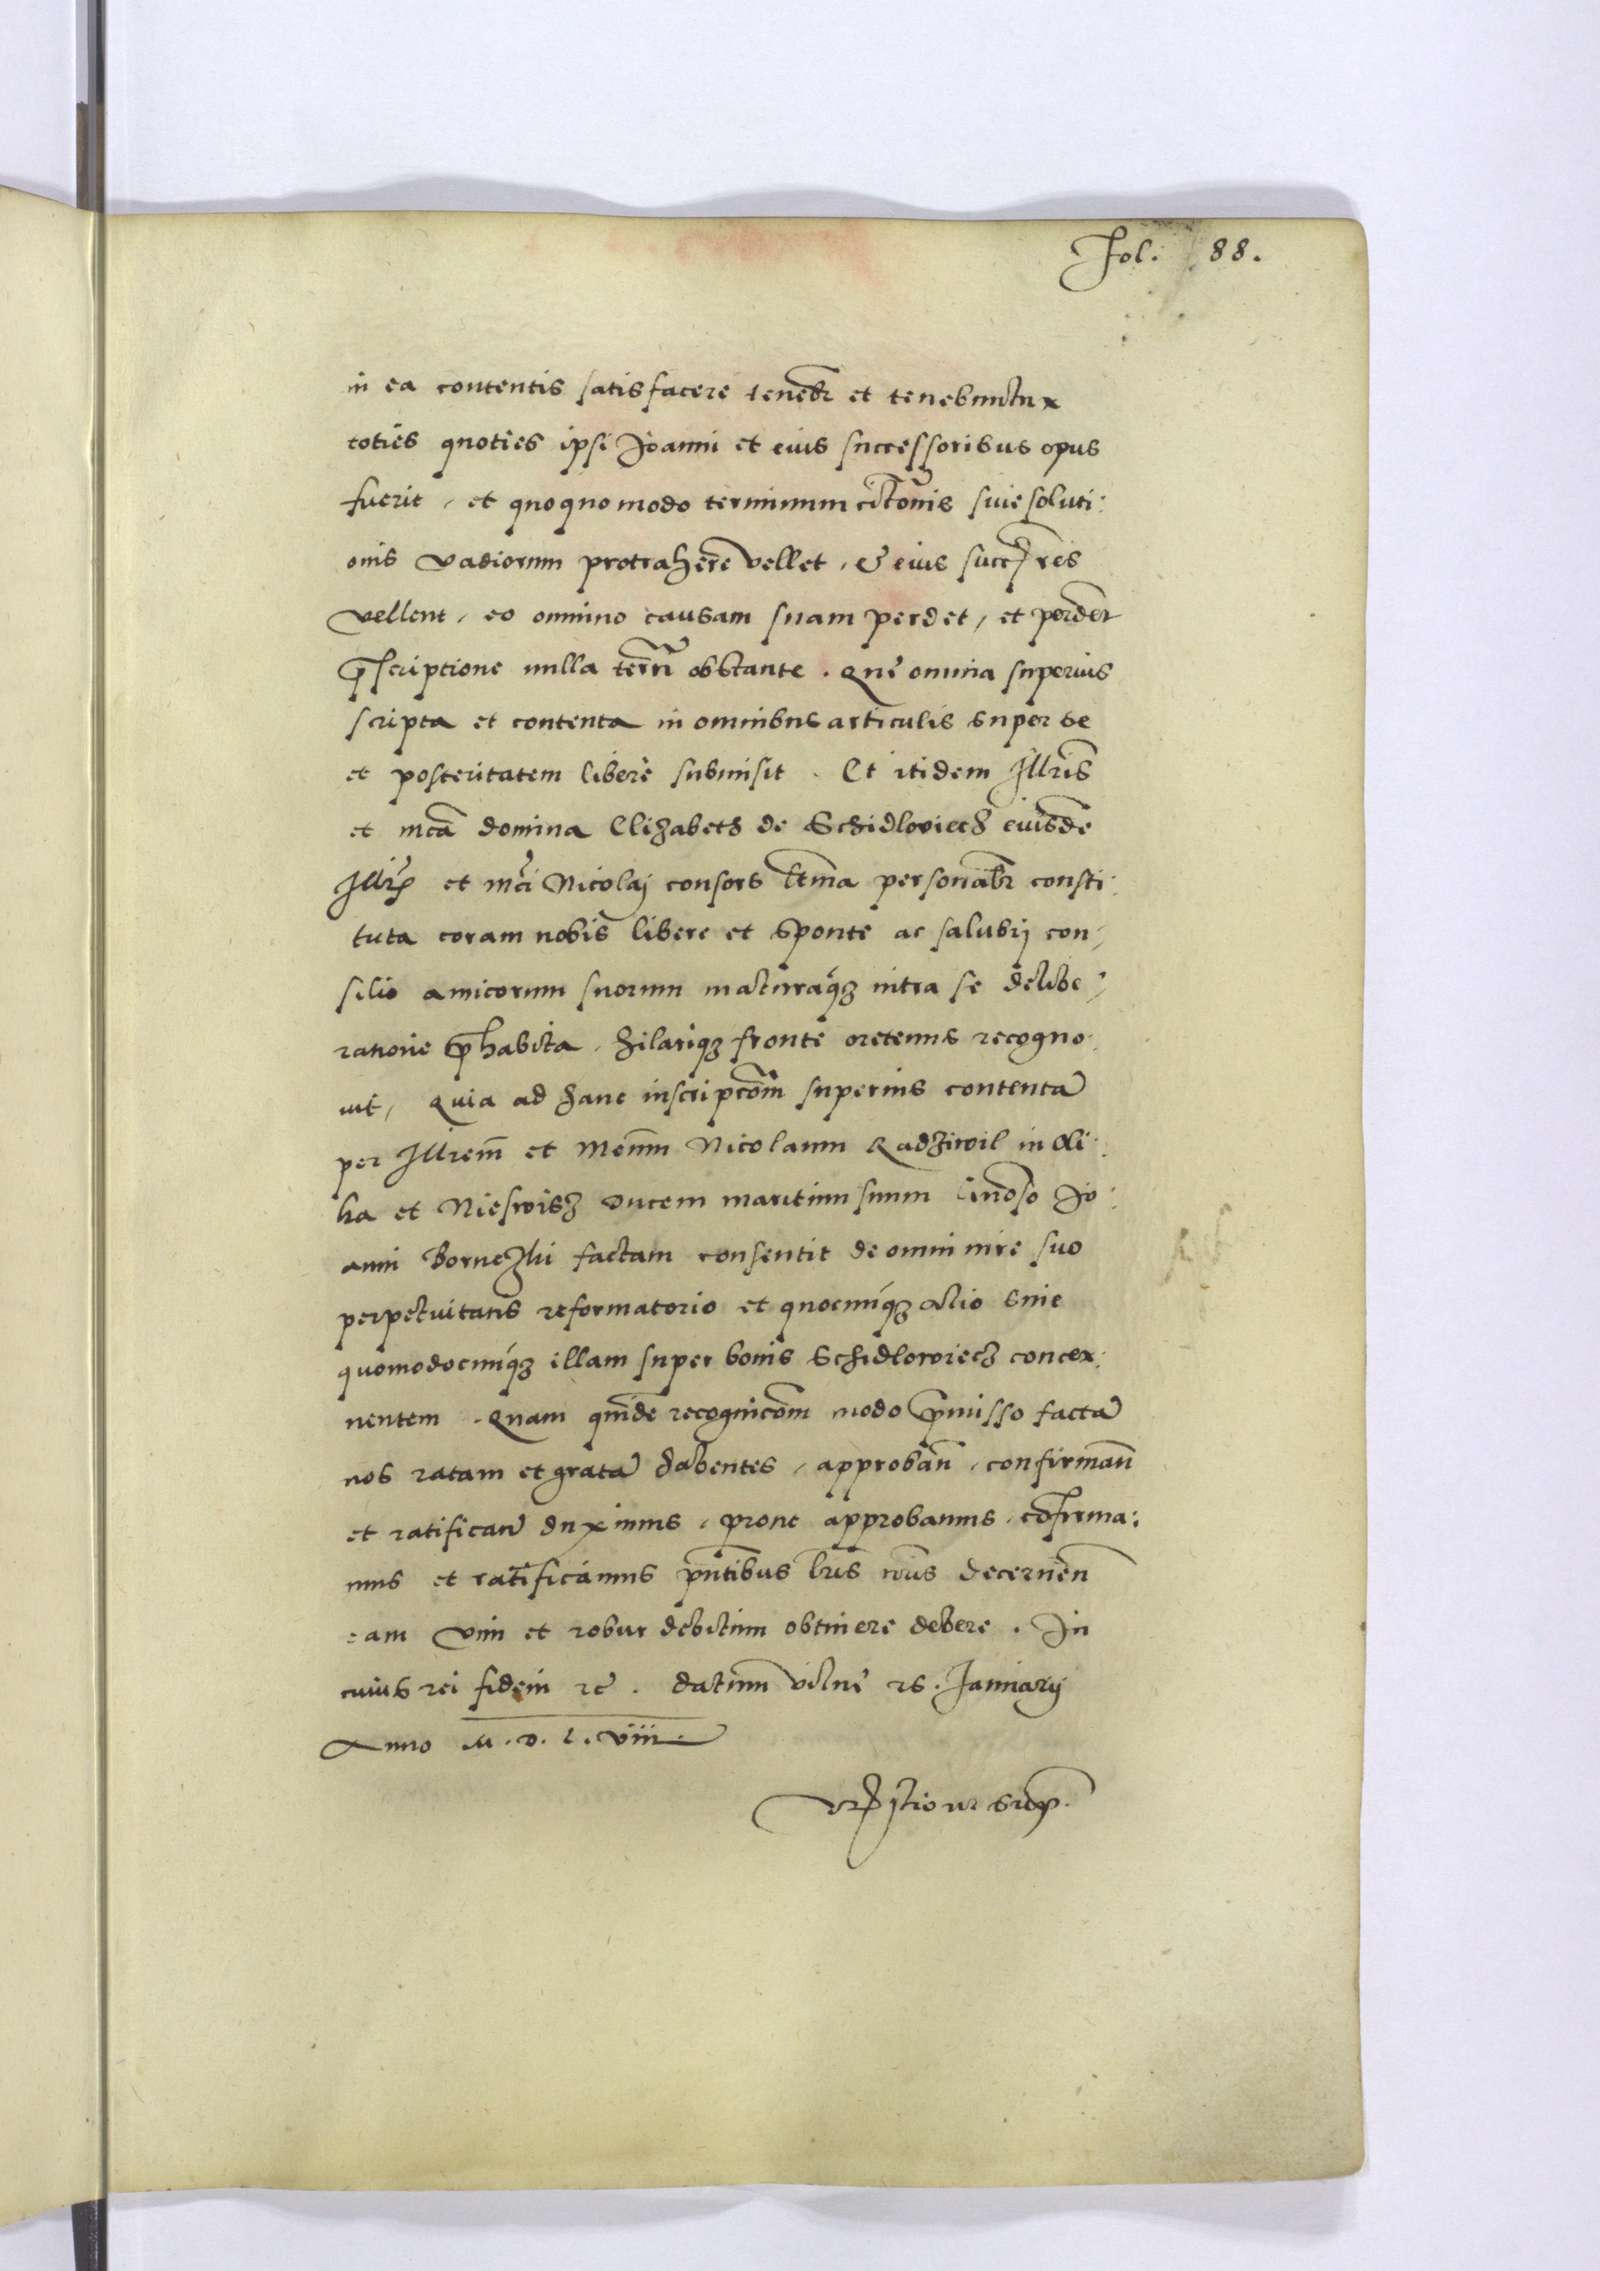 Fol. 88.
in ea contentis satisfacere tenebr et tenebuntur
toties quoties ipsi Joanni et eius successoribus opus
fuerit, et quoquomodo terminum citõnis siue soluti:
onis vadiorum protrahere vellet, & eius succres
vellent, eo omnino causam suam perdet, et perdent
p̄scriptione nulla terrñ obstante. Que omnia superius
scripta et contenta in omnibus articulis super se
et posteritatem libere submisit. Et itidem Illris
et mca domina Elizabeth de Schidloviecz eiusdē
Illris et mci Nicolaj consors ltma personalr consti:
tuta coram nobis libere et sponte ac salubrj con,
silio amicorum suorum maturaq₃ intra se delibe,
ratione p̄habita, hilariq₃ fronte oretenus recogno:
uit, Quia ad hanc inscripcõm superius contentã
per Illrem et Mcum Nicolaum Radziwil in Oli:
ka et Nieswisz ducem maritum suum Gnoso Jo:
anni Bornezki factam consentit de omni iure suo
perpetuitatis reformatorio et quocunq₃ alio siue
quomodocunq₃ illam super bonis Schidlowiecz concer:
nentem. Quam quidē recognicõm modo p̄misso factã
nos ratam et gratã habentes, approbañ, confirmañ
et ratificañ duximus, prout approbamus, cõfirma:
mus et ratificamus pñtibus lris nris decerneñ
eam vim et robur debitum obtinere debere. In
cuius rei fidem rc. datum vilne 25. Januarij
Anno M.D.L.viii.